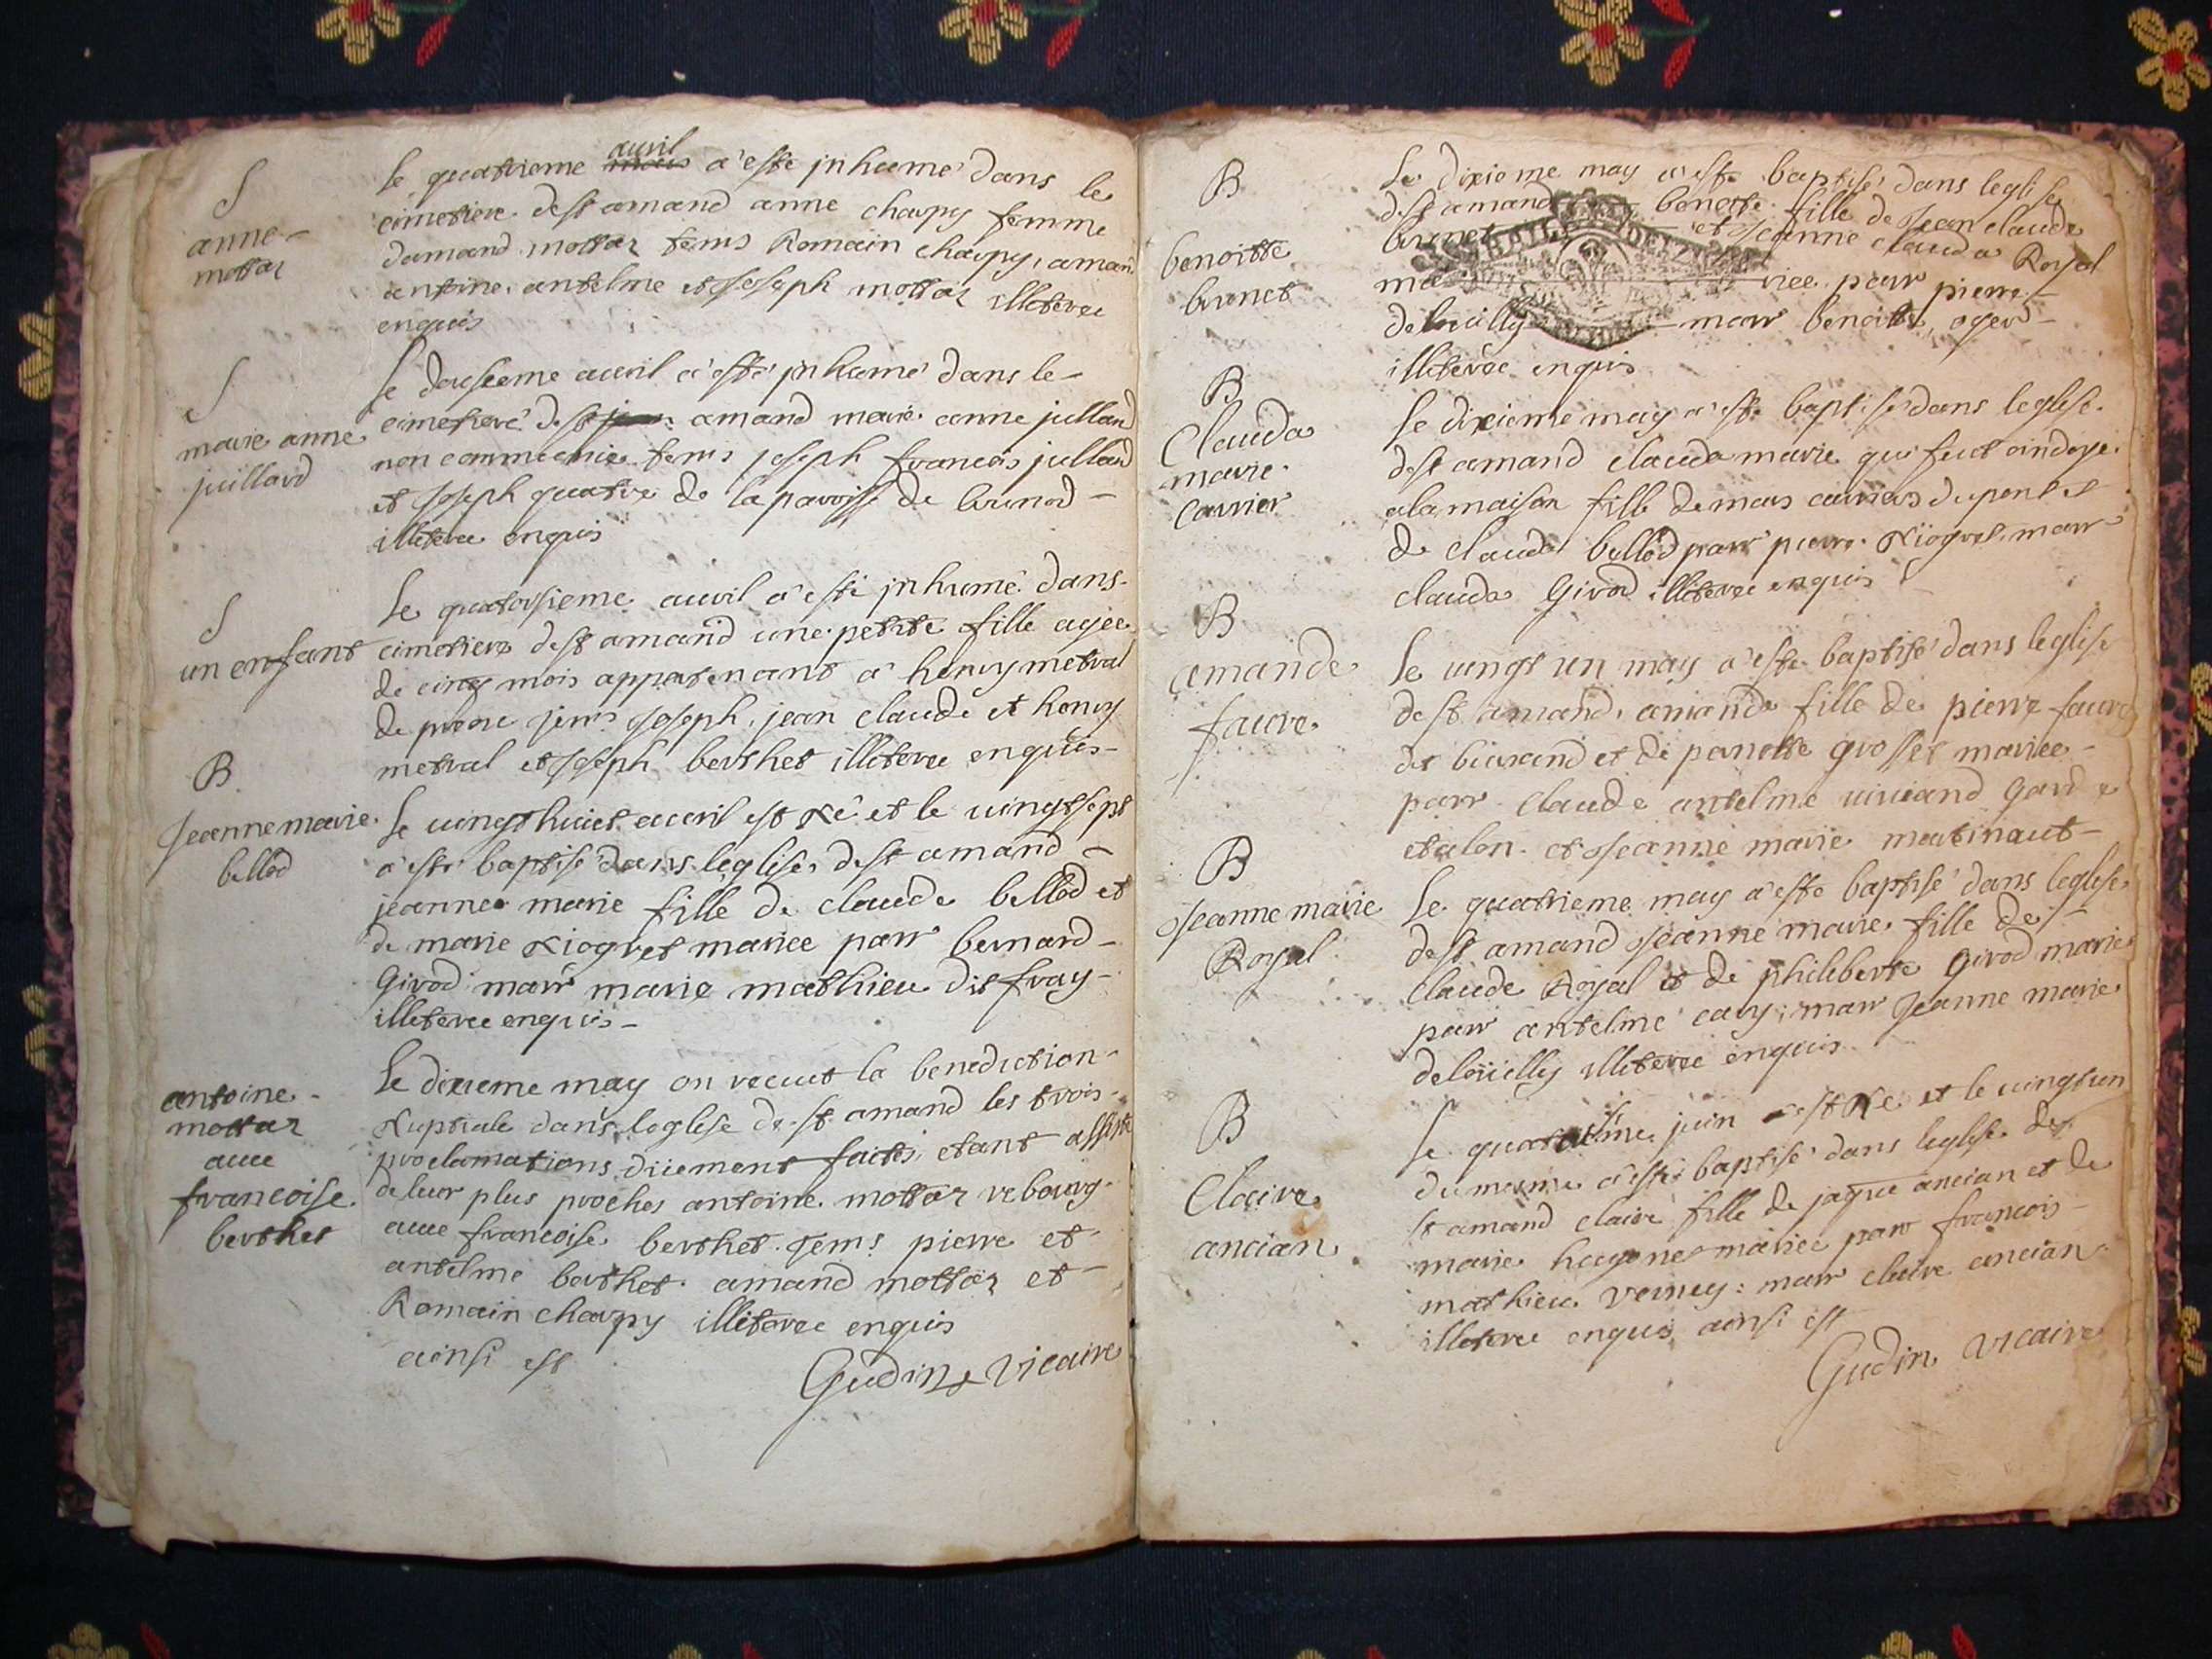 S
anne
mottaz
le quatrieme avril a este jnhumé dans le
cimetiere de st amand anne charpy femme
damand mottaz tems Romain charpy, amand
antoine. antelme et Joseph mottaz illiteree
enquis
S
marie anne
juillard
le dousieme avril a esté jnhumé dans le
cimetiere de st amand marie anne julland
non communiée tems joseph francois julland
et Joseph quatre de la parroisse de brenod
illiteree enquis
S
un enfant
Le quatorsieme avril a esté jnhumé dans
cimetiere de st amand une petite fille agee
de cinq mois appartenant a henry metral
de tems Joseph, jean claude et henry
metral et Joseph berthet illiteree enquis
B
Jeanne marie
bellod
le vingt huict avril est Né et le vingt sept
a esté baptisé dans leglise de st amand
jeanne marie fille de claude bellod et
de marie Niogret mariee parr bernard
Girod marr marie mathieu dit fray
illiteree enquis
antoine
mottaz
avec
francoise
berthet
Le dixieme may on receut la benediction
Nuptiale dans leglise de st amand les trois
proclamations düement faites etant assisté
de leur plus proches antoine mottaz rebourg
avec francoise berthet. Tems pierre et
antelme berthet. amand mottaz et
Romain charpy illiteree enquis
ainsi est
Gudin vicaire
B
benoitte
brunet
Le dixieme may a este baptisé dans leglise
de st amand benoitte fille de Jean claude
brunet et Jeanne clauda Royal
ma riee parr pierre
delouilly marr benoitte oger
illiteree enquis
B
Clauda
marie
Carrier
le dixieme may a este baptisé dans leglise
de st amand clauda marie qui fut ondoye
a la maison fille de mars carrier dupont et
de clauda bellod parr pierre Niogret marr
clauda Girod illiteree enquis
B
amande
favre
le vingt un may a este baptisé dans leglise
de st amand, amande fille de pierre favre
de et de panette grosset mariee
parr claude antelme viviand garde
etalon et Jeanne marie martinaut
B
Jeanne marie
Royal
Le quatrieme may a este baptisé dans leglise
de st amand Jeanne marie fille de
claude Royal et de philiberte Girod mariee
parr antelme cary, marr Jeanne marie
deloüilly illiteree enquis
B
Claire
ancian
le juin est Né et le vingt un
du mesme a esté baptisé dans leglise de
st amand claire fille de jaque ancian et de
marie mariee parr francois
mathieu verney: marr claire ancian
illiteree enquis ainsi est
Gudin vicaire